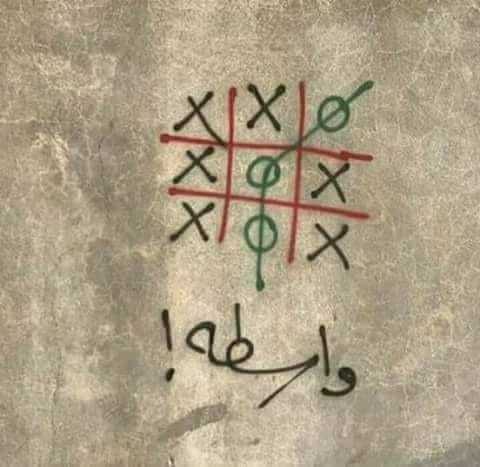 X X O
X O X
X O X
واسطه !